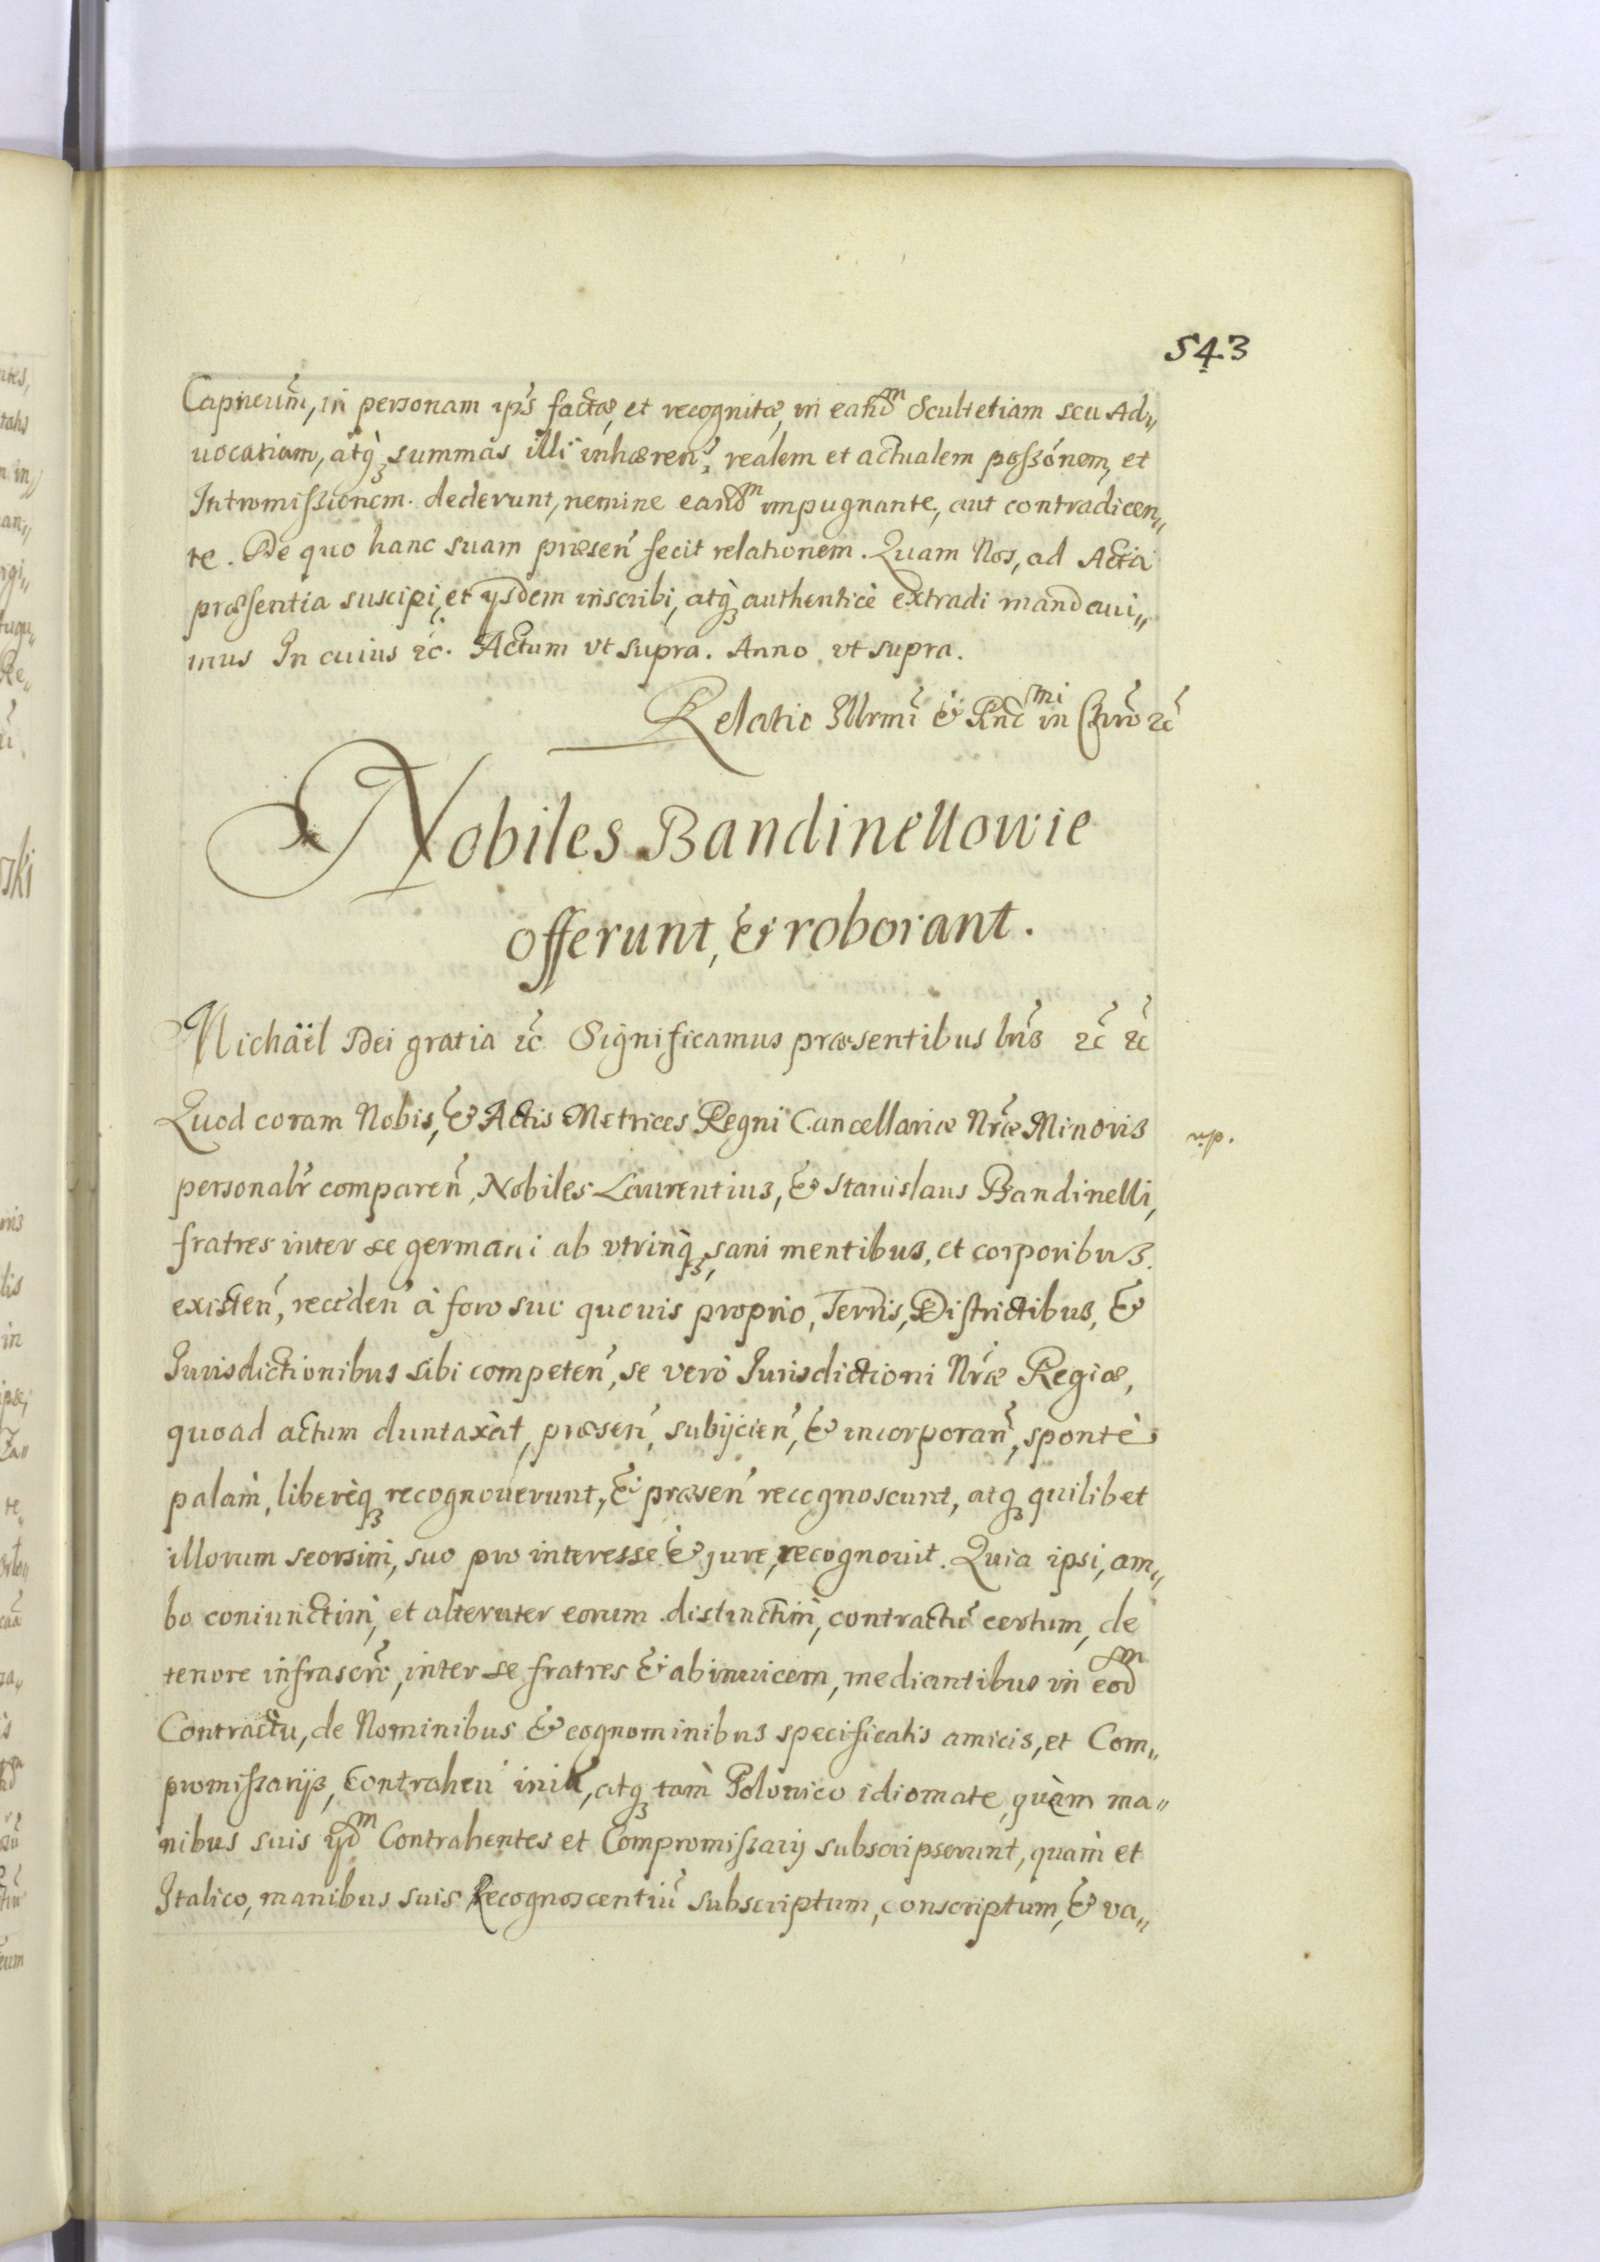 543
in personam ip̃s factæ, et recognitæ, in eand̃m Scultetiam seu Ad„
uocatiam, atq̀ʒ summas illi inhæreñ, realem et actualem possõnem, et
Intromissionem dederunt, nemine eand̃m impugnante, aut contradicen„
te. De quo hanc suam præseñ fecit relationem. Quam Nos, ad Acta
præsentia suscipi, et ijsdem inscribi, atq̀ʒ authenticè extradi mandaui„
mus In cuius ꝛc̃. Actum vt supra. Anno vt supra.
Relatio Illrmi & Rñdmi in Chr̃o ꝛc̃
Nobiles Bandinellowie
offerunt, & roborant.
Michäël Dei gratia ꝛc̃ Significamus præsentibus lr̃is ꝛc̃ ꝛc̃
Quod coram Nobis, & Actis Metrices Regni Cancellariæ Nr̃æ Minoris
personalr̃ compareñ, Nobiles Laurentius, & Stanislaus Bandinelli,
fratres inter se germani ab vtrinq̀ʒ, sani mentibus, et corporibus
existeñ, recedeñ à foro suo quouis proprio, Terris, Districtibus, &
Iurisdictionibus sibi competeñ, se verò Iurisdictioni Nr̃æ Regiæ,
quoad actum duntaxàt, præseñ, subijcieñ, & incorporañ, spontè
palàm, liberèqʒ recognouerunt, & præseñ recognoscunt, atqʒ quilibet
illorum seorsim, suo pro interesse & jure, recognouit. Quia ipsi, am„
bo coniunctìm, et alteruter eorum distinctìm, contractũ certum, de
tenore infrascr̃o, inter se fratres & ab inuicem, mediantibus in eod̃m
Contractu, de Nominibus & cognominibus specificatis amicis, et Com„
promissarijs, Contraheñ atqʒ tàm Polonico idiomate, quàm ma„
nibus suis ijd̃m Contrahentes et Compromissarij subscripserunt, quàm et
Italico, manibus suis Recognoscentiũ subscriptum, conscriptum, & va„